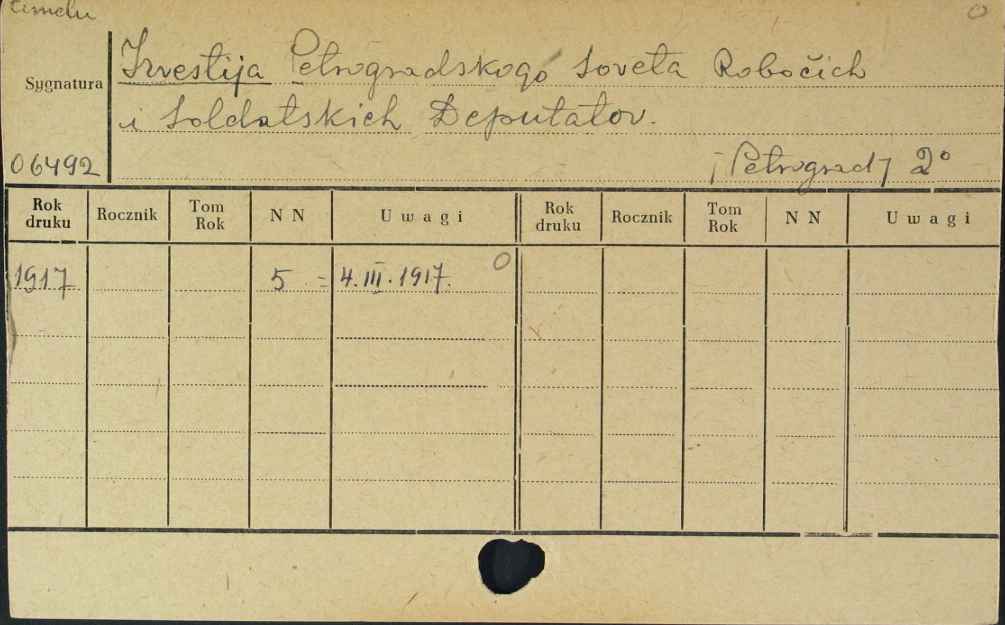 Izvestija Petrogradskogo Soveta Robočich
Sygnatura
i Soldatskich Deputatov.
06492
[Petrograd] 2°
Rok druku Rocznik Tom Rok NN Uwagi Rok druku Rocznik Tom Rok NN Uwagi
1917 5 = 4.III.1917. O